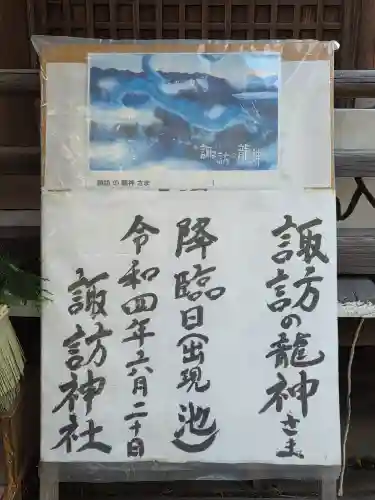 諏訪の龍神
諏訪 の 龍神 さま
諏訪の龍神さま
降臨日(出現池)
令和四年六月二十日
諏訪神社